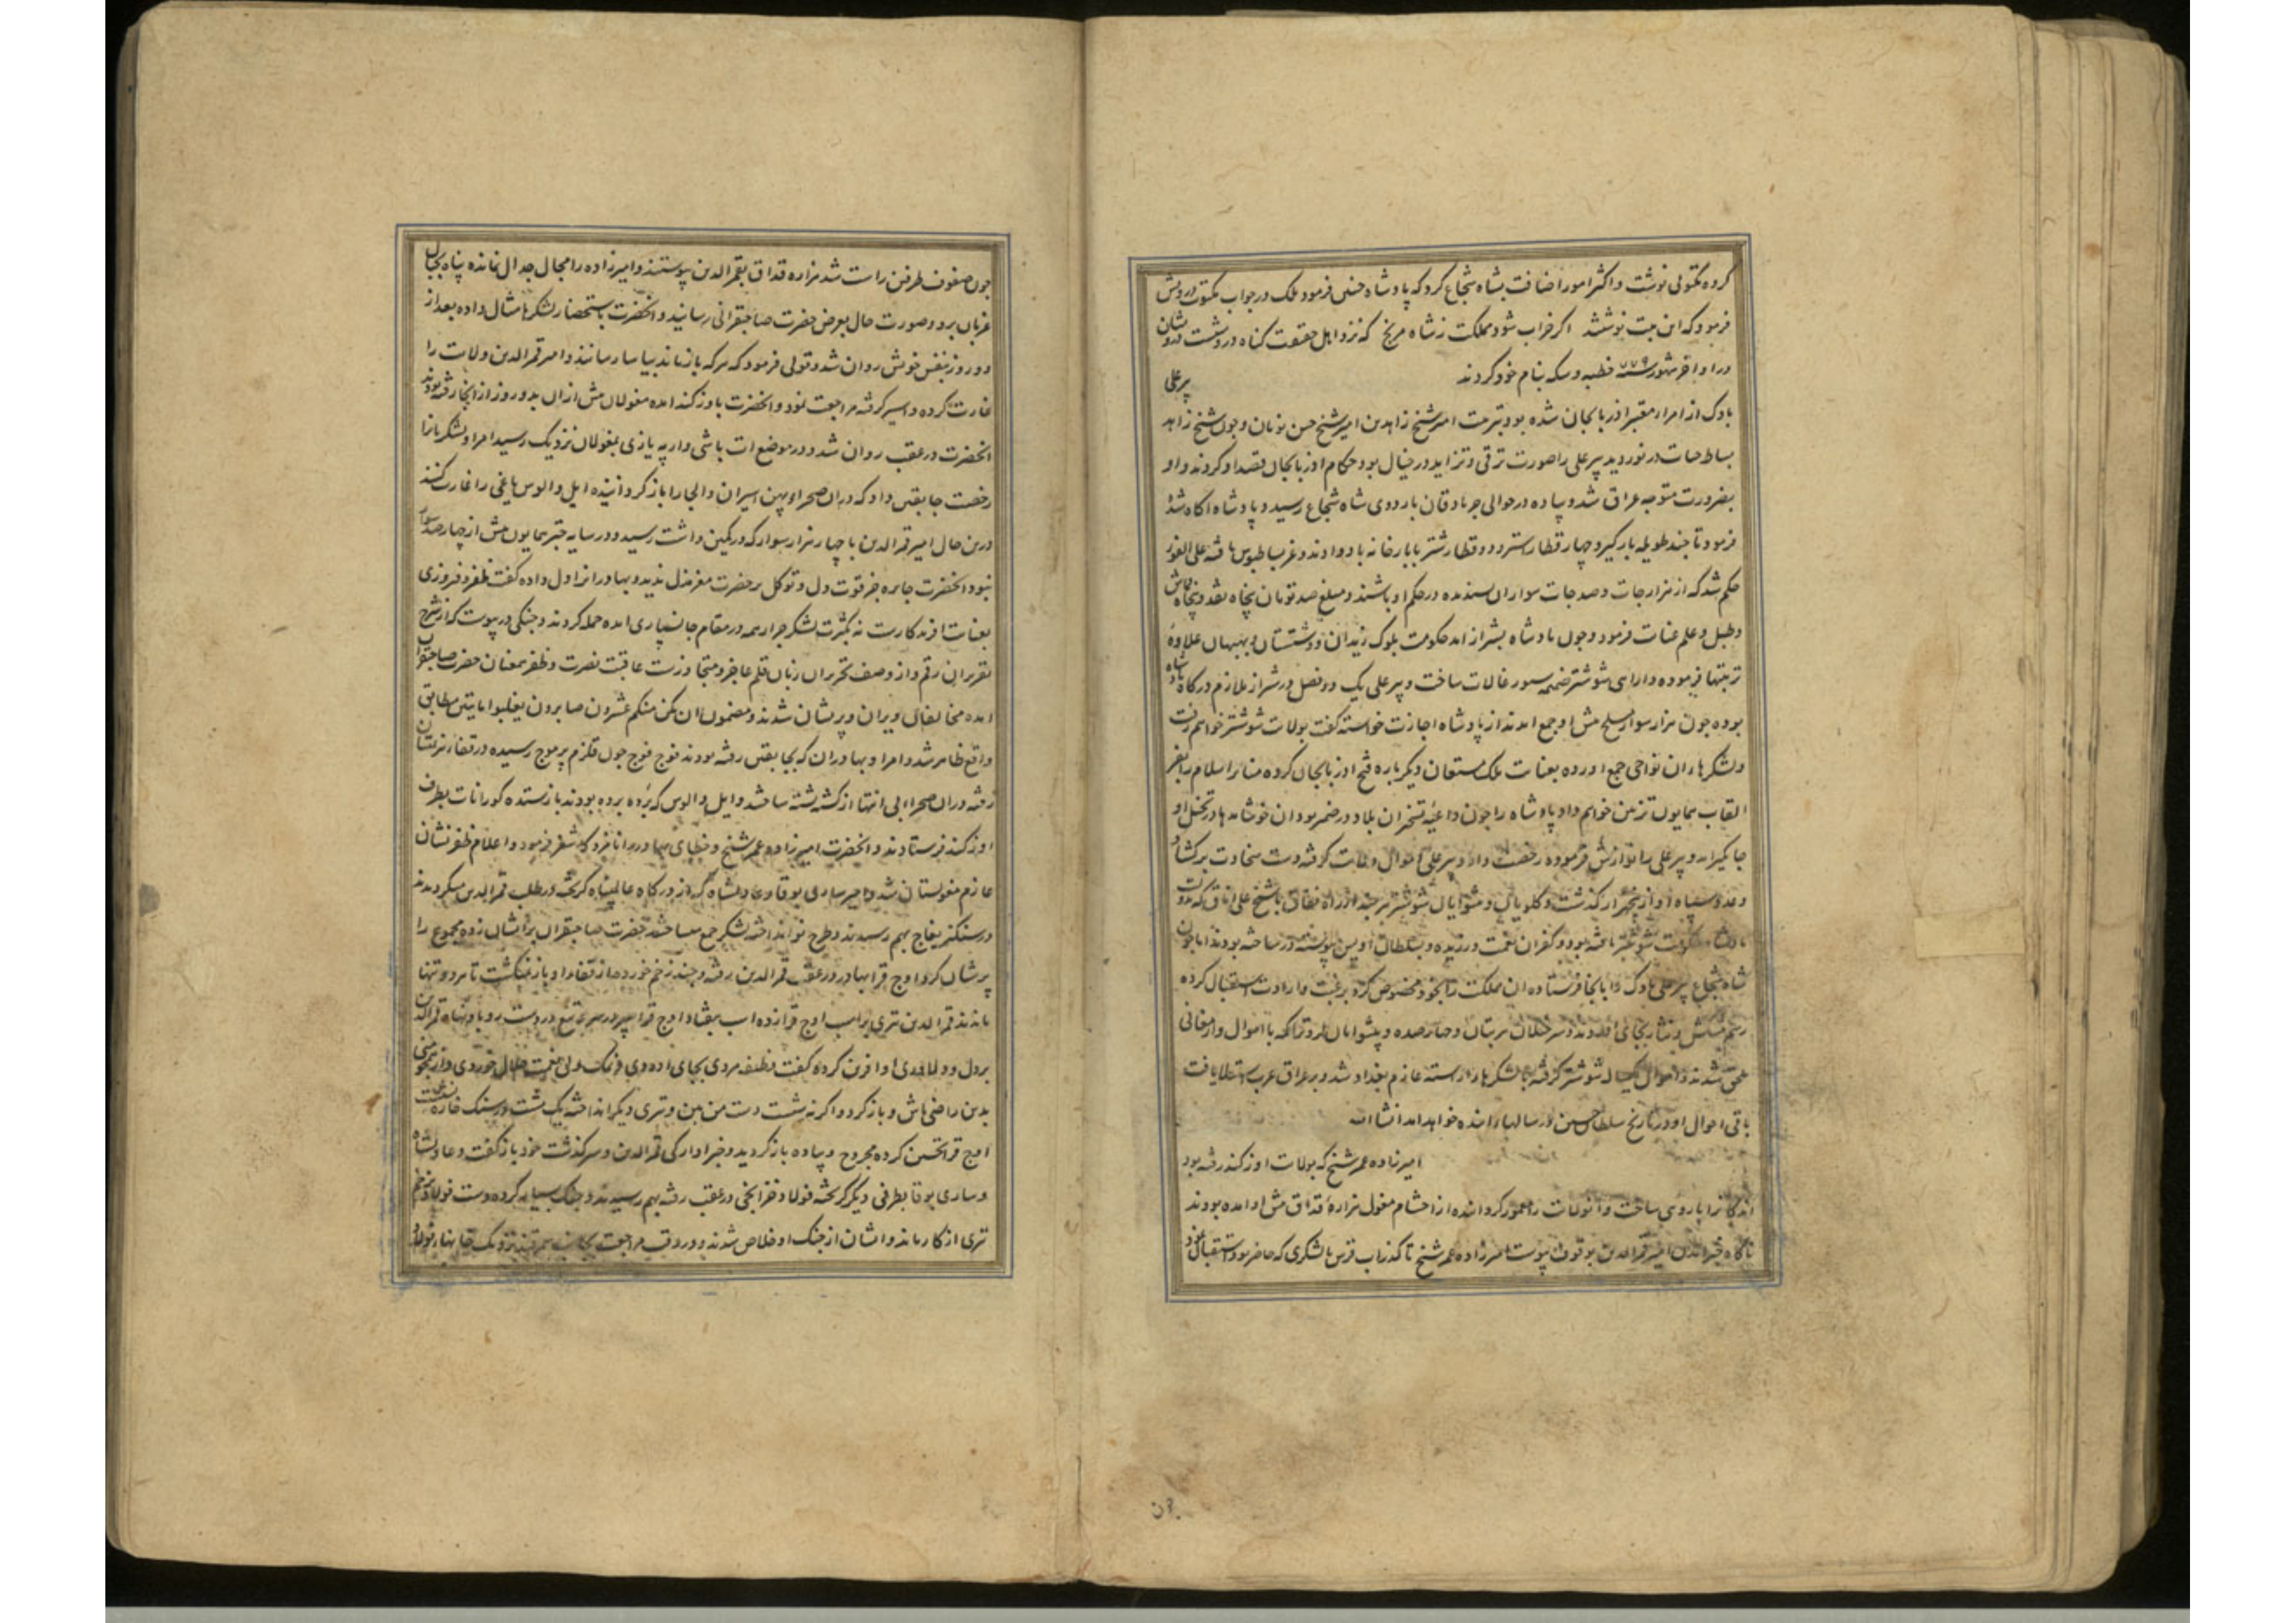 کرده مکتوبی نوشت و اکثر امور اضافت بشاه شجاع کرد که پادشاه چنین فرمود ملک در جواب مکتوب درویش
فرمود که این بیت نوشتند اکر خراب شود مملکت ز شاه مرنج که نزد اهل حقیقت کناه درویشست
در اواخر شهور سنه ۷۷۹ خطبه و سکه بنام خود کردند
پیر علی
بادک از امراء معتبر اذربایجان شده بود بتربیت امیر شیخ زاهد بن امیر شیخ حسن نویان و چون شیخ زاهد
بساط حیات در نوردید پیر علی را صورت ترقی و تزاید در خیال بود حکام اذربایجان قصد او کردند و او
بضرورت متوجه عراق شد و پیاده در حوالی جربادقان باردوی شاه شجاع رسید و پادشاه اکاه شده
فرمود تا چند طویله بارکیر و چهار قطار استر و دو قطار شتر با بارخانه باو دادند و غریب ملبوس یافته علی الفور
حکم شد که از هزارجات و صدجات سواران پسندیده در حکم او باشند و مبلغ صد تومان پنجاه نقد و پنجاه قماش
و طبل و علم عنایت فرمود و چون پادشاه بشیراز امد حکومت بلوک زیدان و دشتستان و بهبهان علاوه
تربیتها فرموده و دارایی شوشتر ضمیمه سیورغالات ساخت و پیر علی یک دو فصل در شیراز ملازم درکاه پادشاه
بوده چون هزار سوار مسلح پیش او جمع امدند از پادشاه اجازت خواسته کفت بولایت شوشتر خواهم رفت
و لشکرها از ان نواحی جمع اورده بعنایت ملک مستعان دیکر باره فتح اذربایجان کرده منابر اسلام را بفر
القاب همایون تزیین خواهم داد پادشاه را چون داعیه تسخیر ان بلاد در ضمیر بود ان خوشامدها در تخیل او
جایکیر امد و پیر علی را نوازش فرموده رخصت داد و پیر علی اموال ولایت کرفته دست سخاوت برکشاد
و عدد سپاه او از پنجهزار کذشت و کلویان و پیشوایان شوشتر هر چند از راه نفاق با شیخ علی ایناق که تربیت
پادشاه حکومت شوشتر یافته بود و کفران نعمت ورزیده و بسلطان اویس پیوسته در ساخته بودند اما چون
شاه شجاع پیر علی بادک را بانجا فرستاده ان مملکت را بخود مخصوص کرد برغبت و ارادت استقبال کرده
رسم پیشکش و نثار بجای اوردند و سرخیلان
ملحق شدند و اموال یکساله شوشتر کرفته با لشکرهای اراسته عازم بغداد شد و بر عراق عرب استیلا یافت
باقی احوال او در تاریخ سلطان حسین در سالهای اینده خواهد امد انشا الله
امیرزاده عمر شیخ که بولایت اوزکند رفته بود
اندکانرا باروی ساخت و انولایت را معمور کردانیده از احشام مغول هزاره قداق پیش او امده بودند
ناکاه خبر امدن امیر قمرالدین بوقوف پیوست امیرزاده عمر شیخ تا کذر اب قرس با لشکری که حاضر بود استقبال نمود
چون صفوف طرفین راست شد هزاره قداق بقمرالدین پیوستند و امیرزاده را مجال جدال نمانده پناه بجبال
غربان برد و صورت حال بعرض حضرت صاحبقرانی رسانید و انحضرت باستحضار لشکرها مثال داده بعد از
دو روز بنفس خویش روان شد و قولی فرمود که هر که باز ماند بیاسا رسانند و امیر قمرالدین ولایت را
غارت کرده و اسیر کرفته مراجعت نمود و انحضرت باوزکند امده مغولان پیش از ان بدو روز از انجا رفته بودند
انحضرت در عقب روان شد و در موضع ات باشی و ارپه یازی بمغولان نزدیک رسید امرا و لشکریانرا
رخصت چابقین داد که در ان صحرای پهن اسیران و الجا را باز کردانیده ایل و الوس یاغی را غارت کنند
درین حال امیر قمرالدین با چهار هزار سوار که در کمین داشت رسید و در سایه چتر همایون بیش از چهارصد سوار
نبود انحضرت چاره جز قوت دل و توکل بر حضرت معز مذل ندید و بهادرانرا دل داده کفت ظفر و فیروزی
بعنایت افریدکارست نه بکثرت لشکر جرار همه در مقام جانسپاری امده حمله کردند و جنکی در پیوست که از شرح
تقریر ان رقم و از وصف تحریر ان زبان قلم عاجز و متجاوزست عاقبت نصرت و ظفر بمعنان حضرت صاحبقران
امده مخالفان ویران و پریشان شدند و مضمون ان یکن منکم عشرون صابرون یغلبوا مایتین مطابق
واقع ظاهر شد و امرا و بهادران که بچابقین رفته بودند فوج فوج چون قلزم پر موج رسیده در قفاء هزیمتیان
رفته در ان صحرا الی انتها از کشته پشته ساختند و ایل و الوس که برده بودند باز ستده کورانات بطرف
اوزکند فرستادند و انحضرت امیرزاده عمر شیخ و خطای بهادر را نامزد کاشغر فرمود و اعلام ظفر نشان
عازم مغولستان شد و امیر ساری بوقا و عادلشاه که از درکاه عالم پناه کریخته در طلب قمرالدین میکردیدند
در سنکز یغاج بهم رسیدند و طرح نو انداخته لشکر جمع میساختند حضرت صاحبقران بر ایشان زده مجموع را
پریشان کرد اوچ قرا بهادر در عقب قمرالدین رفته و چند زخم خورده از قفاء او باز نکشت تا هر دو تنها
ماندند قمرالدین تیری بر اسب اوچ قرا زده اسب بیفتاد اوچ قرا سپر در سر و تیغ در دست رو باو نهاد قمرالدین
بر دل و دلاوری او افرین کرده کفت وظیفه مردی بجای اوردی و نمک ولی نعمت حلال خوردی
بدین راضی باش و باز کرد و اکر نه شست دست من ببین و تیری دیکر انداخته یک مشت در سنک خاره نشست
اوچ قرا تحسین کرده مجروح و پیاده باز کردید و خبر اوارکی قمرالدین و سرکذشت خود باز کفت و عادلشاه
و ساری بوقا بطرفی دیکر کریخته فولاد و قرابخی در عقب رفته بهم رسیدند و جنک بسیار کرده دست فولاد بزخم
تیری از کار ماند و ایشان از جنک او خلاص شدند و در وقت مراجعت بجانب سمرقند نزدیک